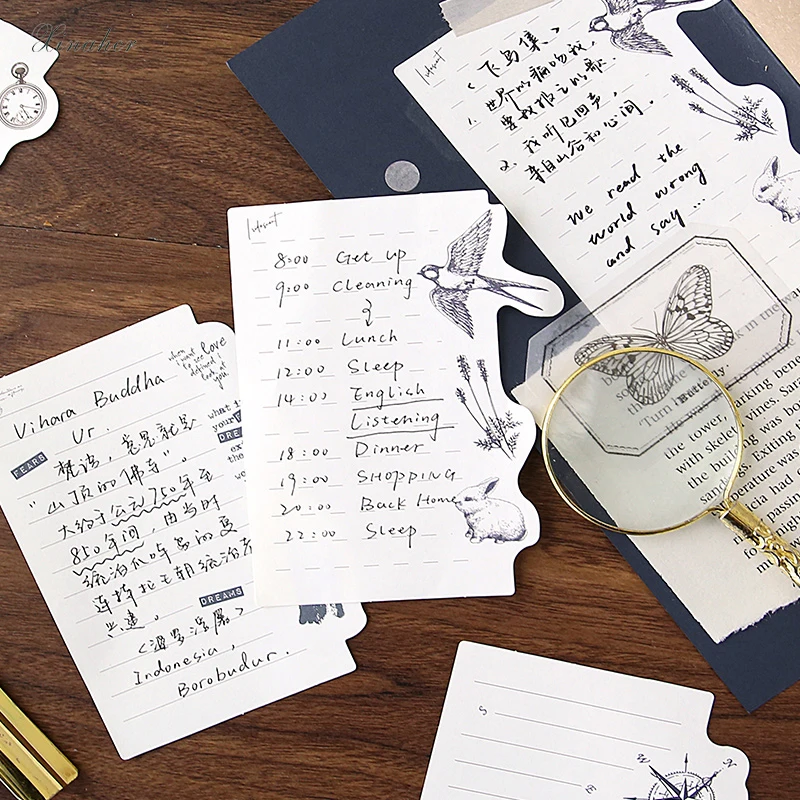 8:00 Get up
9:00 Cleaning
11:00 Lunch
12:00 Sleep
14:00 English
Listening
18:00 Dinner
19:00 SHOPPING
20:00 Back Home
22:00 Sleep
Vihara Buddha
Ur.
FEARS
梵语，意思就是
"山顶的佛寺"。
大约于公元750年至
850年间，由当时
统治爪哇岛的夏
连特拉王朝统治者
兴建。
DREAMS
《婆罗浮屠》
Indonesia,
Borobudur.
when
i want
to see love
defined i
look at
you
《飞鸟集》
1. 世界以痛吻我，
要我报之以歌.
2. 我听见回声，
来自山谷和心间.
we read the
world wrong
and say ...
Butterfly
"Turn
with skele
the building was
vines. Saras
Exiting th
S
E
N
W